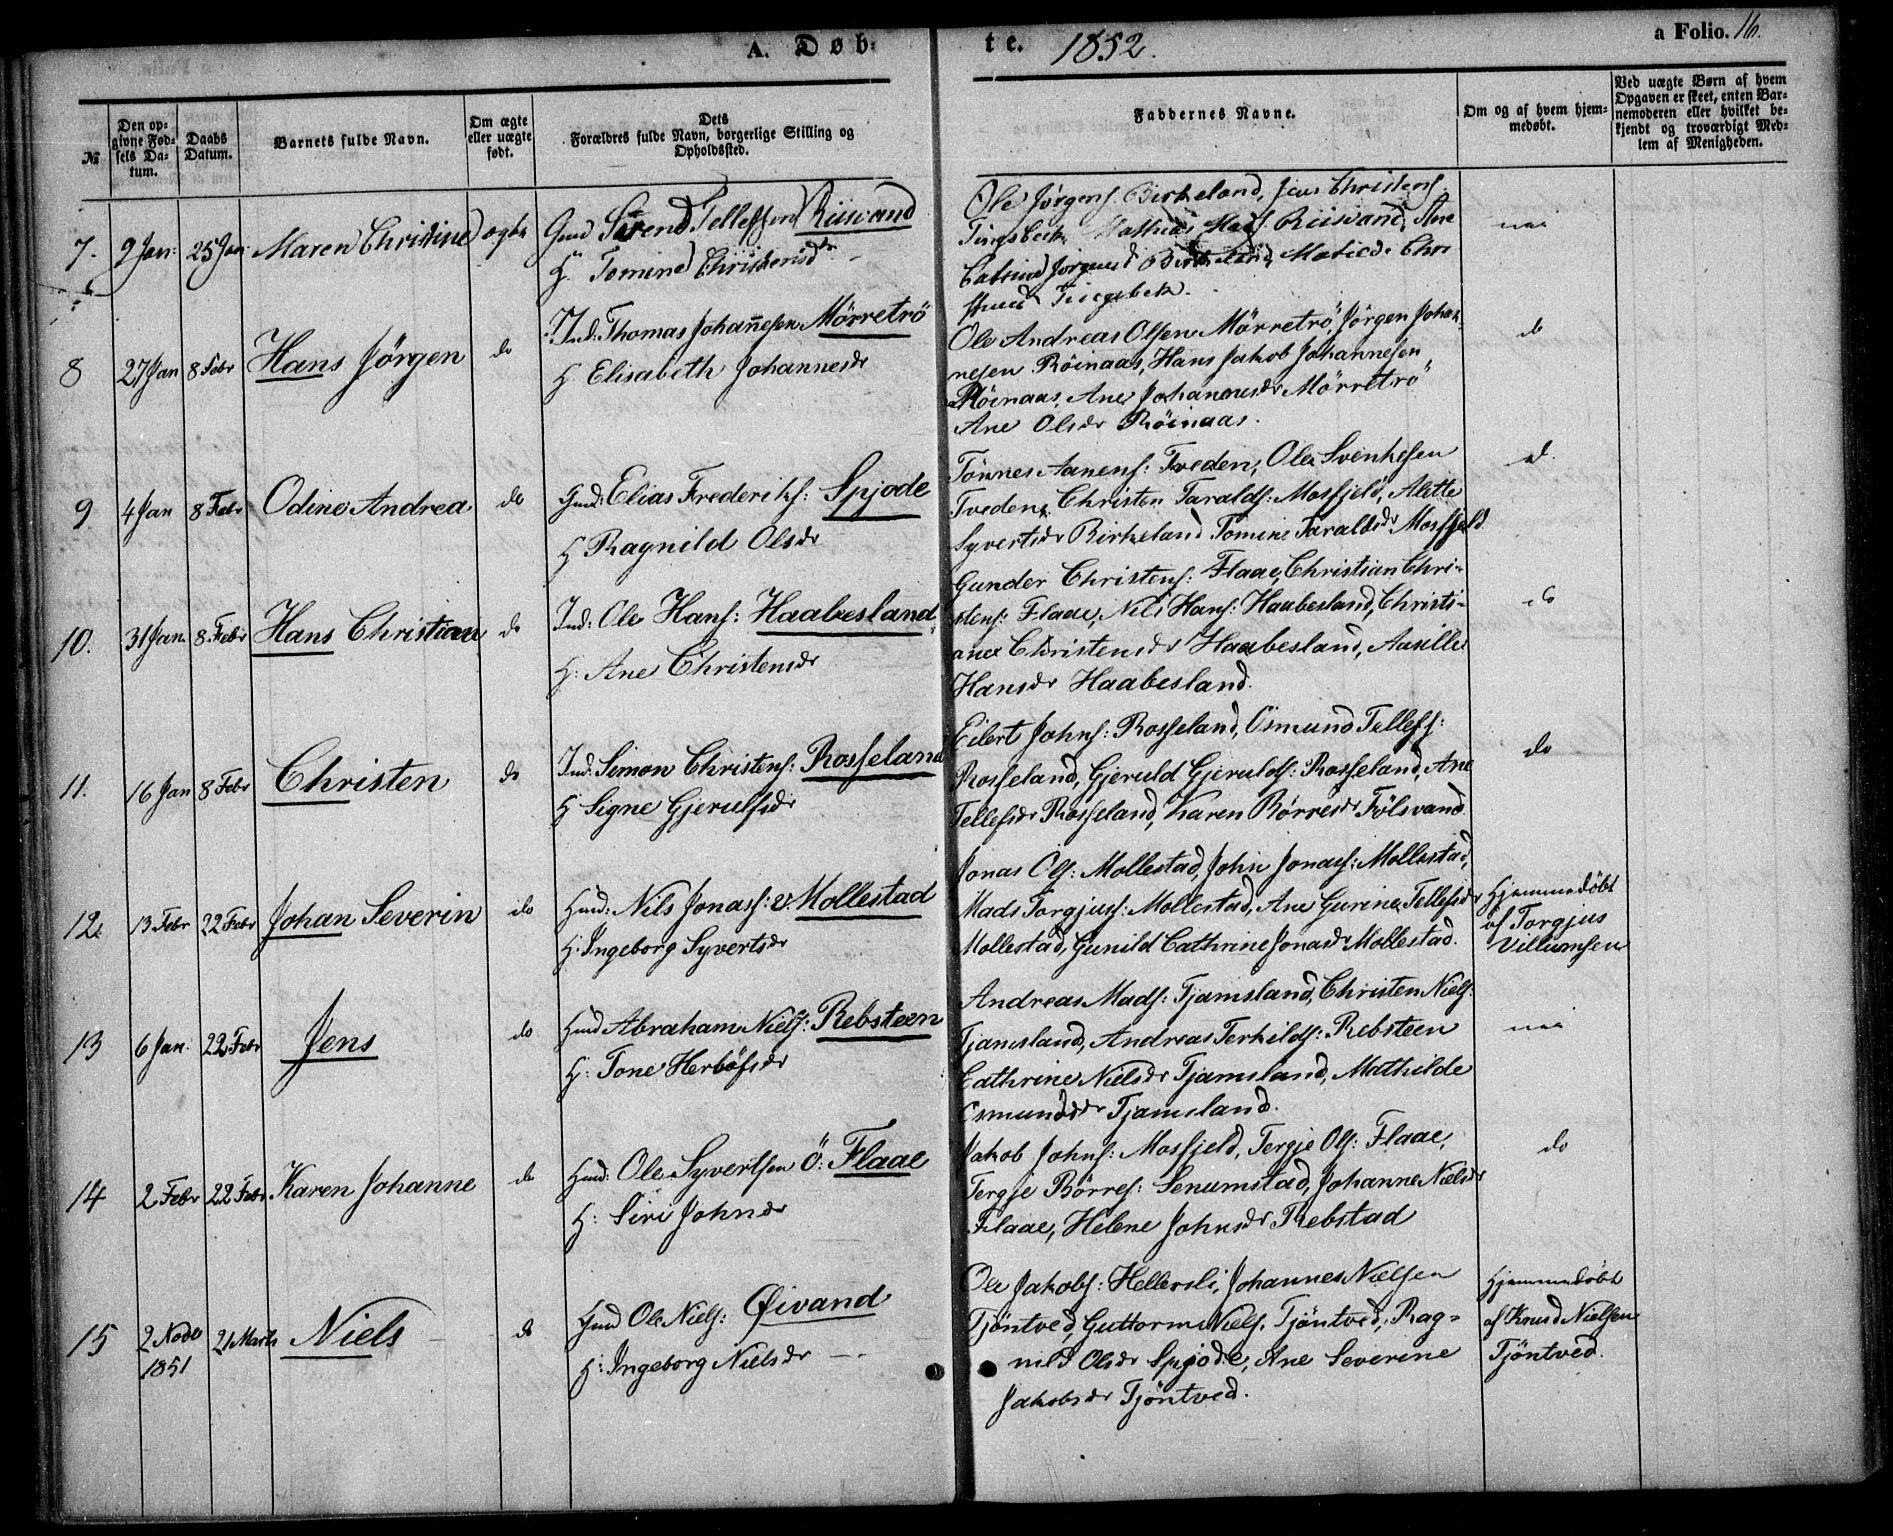 A. Døb: te. 1852.
a Folio. 16.
№
Den op-
givne Fød-
sels Da-
tum.
Daabs
Datum.
Barnets fulde Navn.
Om ægte
eller uægte
født.
Dets
Forældres fulde Navn, borgerlige Stilling og
Opholdssted.
Faddernes Navne.
Om og af hvem hjem-
medøbt.
Ved uægte Børn af hvem
Opgaven er skeet, enten Bar-
nemoderen eller hvilket be-
kjendt og troværdigt Med-
lem af Menigheden.
7. 9 Jan: 25 Jan Maren Christine ægte
Gmd Sørend Tellefsen Riisvand
H. Tomine Christensdr
Ole Jørgens: Birkeland, Christens.
Tingsbek Mathias Mads Riisvand, Ane
Catrine Jørgensd Birkeland, Matilde Chri
stensd Tingsbek.
nei
8 27 Jan 8 Febr Hans Jörgen do
Ind: Thomas Johannesen Mörretrö
H Elisabeth Johannesdr
Ole Andreas Olsen Mörretrö, Jörgen Johan-
nesen Röinaas, Hans Jakob Johannesen
Röinaas, Ane Johannesdr Mörretrö
Ane Olsdr Röinaas.
do
9 4 Jan 8 Febr Odine Andrea do
Gmd: Elias Frederiks: Spjode
H Ragnild Olsdr
Tönnes Aanens: Tveden, Ole Svenkesen
Tveden, Christen Taralds: Mosfjeld, Alette
Syvertsdr Birkeland Tomine Taraldsdr Mosfjeld
d.
10. 31 Jan. 8 Febr Hans Christian do
Ind: Ole Hans: Haabesland
H: Ane Christensdr
Gunder Christens: Flaae, Christian Chri-
stens: Flaae, Nils Hans: Haabesland, Christi-
ane Christensdr Haabesland, Aasille
Hansdr Haabesland.
do
11. 16 Jan 8 Febr Christen do
Ind: Simon Christens: Rosseland
H Signe Gjerulfsdr
Eilert Johns: Rosseland, Osmund Tellefs:
Rosseland, Gjeruld Gjerulds: Rosseland, Ane
Tellefsdr Rosseland, Karen Börresdr Fölsvand
do
12. 13 Febr 22 Febr Johan Severin do
Hmd: Nils Jonass: v. Mollestad
H. Ingeborg Syvertsdr
Jonas Ols: Mollestad, John Jonass: Mollestad,
Mads Torgjuss: Mollestad, Ane Gurine Tellefsdr
Mollestad, Gunild Cathrine Jonasdr Mollestad.
Hjemmedöbt
af Torgjus
Villumsen
13 6 Jan. 22 Febr Jens do
Hmd Abraham Niels: Rebsteen
H: Tone Herlöfsdr
Andreas Mads: Tjamsland, Christen Niels:
Tjamsland, Andreas Terkilds: Rebsteen
Cathrine Nielsdr Tjamsland, Mathilde
Osmundsdr Tjamsland.
nei
14 2 Febr 22 Febr Karen Johanne do
Hmd: Ole Syvertsen Ö: Flaae
H: Siri Johnsdr
Jakob Johns: Mosfjeld, Tergje Ols: Flaae,
Tergje Börres: Senumstad, Johanne Nielsdr
Flaae, Helene Johnsdr Rebstad
do
15 2 Novbr 1851 21 Marts Niels do
Hmd Ole Niels: Øivand
H: Ingeborg Nielsdr
Ole Jakobs: Hellersli, Johannes Nielsen
Tjöntved, Guttorm Niels. Tjöntved, Rag-
nild Olsdr Spjode, Ane Severine
Jakobsdr Tjöntved.
Hjemmedöbt
af Knud Nielsen
Tjöntved.